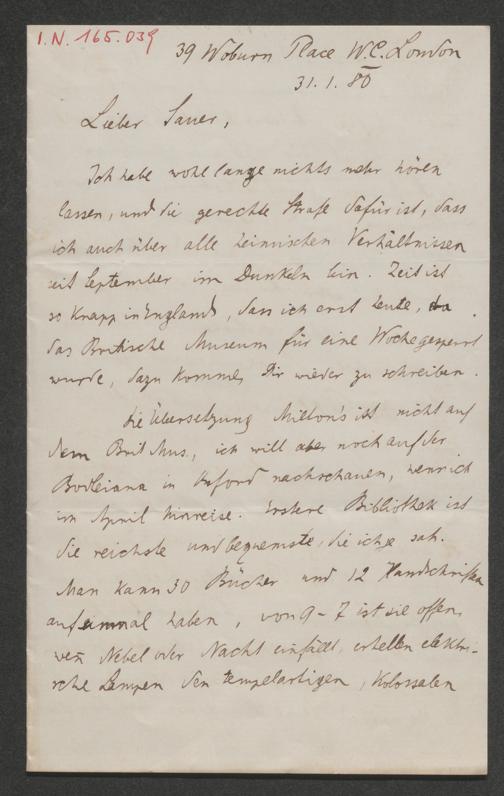 I.N. 165.039
39 Woburn Place W.C. London
31.1.80
Lieber Sauer,
Ich habe wohl lange nichts mehr hören
lassen, und die gerechte Strafe dafür ist, dass
ich auch über alle heimischen Verhältnissen
seit September im Dunkeln bin. Zeit ist
so knapp in England, dass ich erst heute, da
das Britische Museum für eine Woche gesperrt
wurde, dazu komme, Dir wieder zu schreiben.
Die Übersetzung Milton's ist nicht auf
dem Brit Mus., ich will aber noch auf der
Bodleiana in Oxford nachschauen, wenn ich
im April hinreise. Erstere Bibliothek ist
die reichste und bequemste, die ich je sah.
Man kann 30 Bücher und 12 Handschriften
auf einmal haben, von 9-7 ist sie offen,
wen̄ Nebel oder Nacht einfällt, erhellen elektri-
sche Lampen den tempelartigen, kolossalen